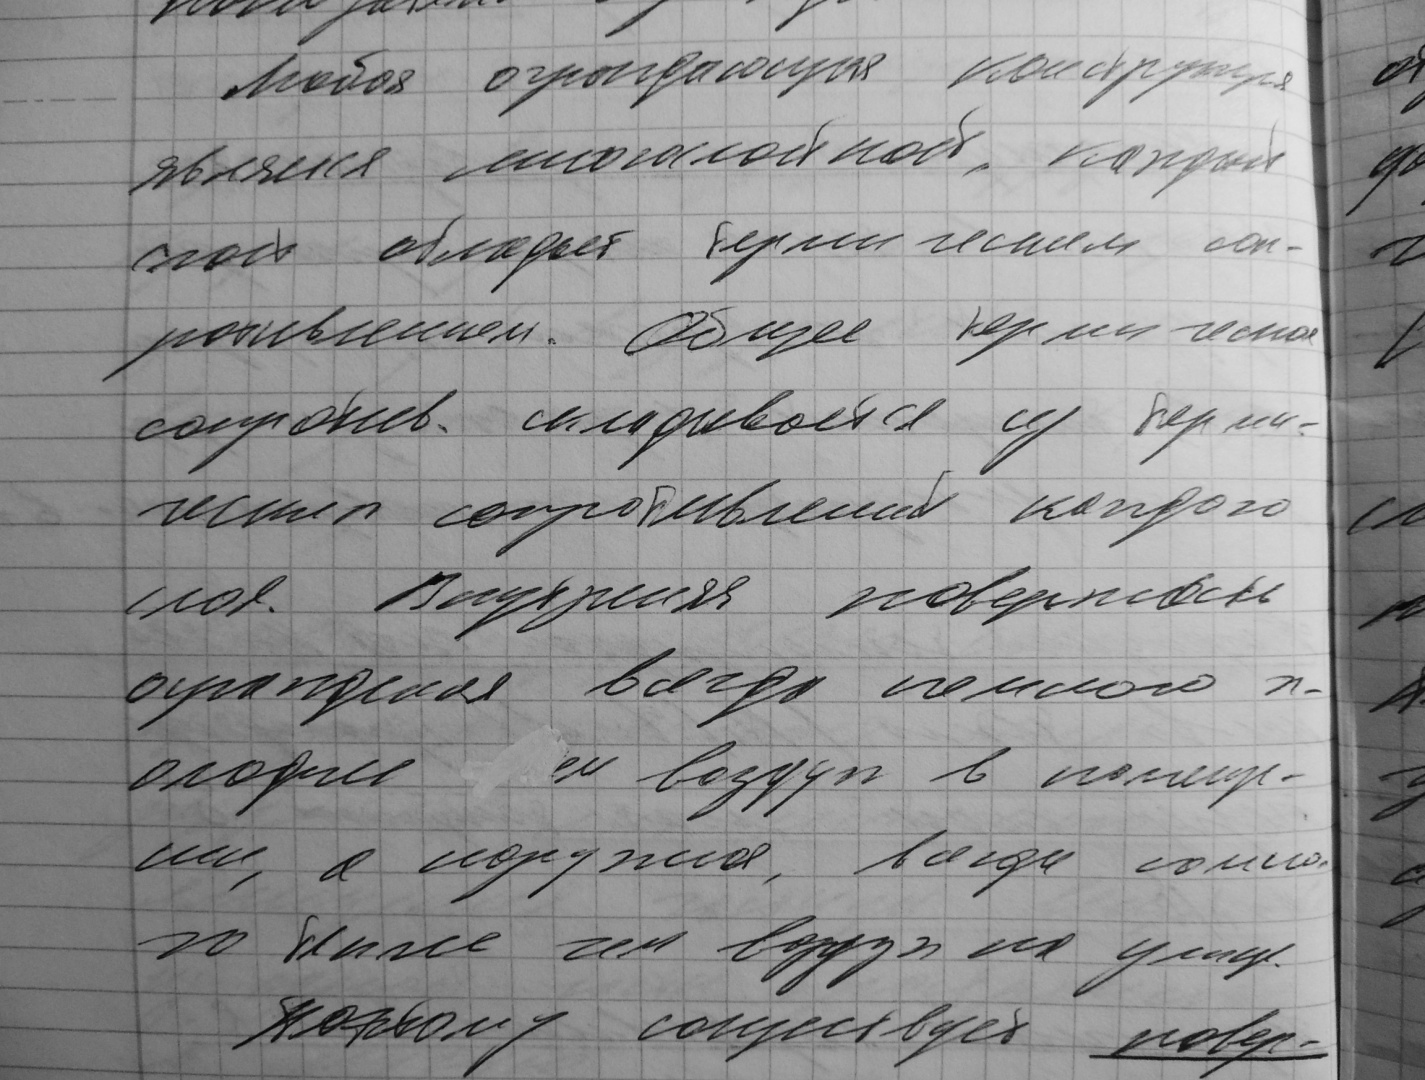 Любая ограждающая конструкция
являяся многослойной, каждый
слой обладает термическим соп-
ротивлением. Общее термическое
сопротив. складывается из терми-
ческих сопротивлений каждого
слоя. Внутренняя поверхность
ограждения всегда немного х-
олоднее ем воздух в помеще-
нии, а наружная, всегда немно-
го теплее чем воздух на улице.
Поэтому существует повер-